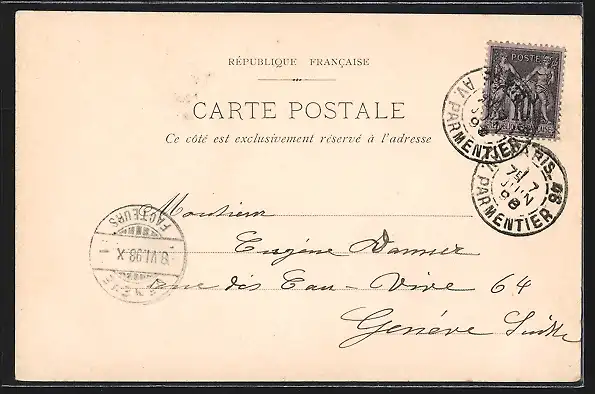 RÉPUBLIQUE FRANÇAISE
CARTE POSTALE
Ce côté est exclusivement réservé à l'adresse
POSTE
AV. PARMENTIER
PARIS 46
7 JUIN 98
PARMENTIER
Monsieur
Eugène
rue des Eaux-Vive 64
Genève Suisse
FACTEURS
8.VI.98.X